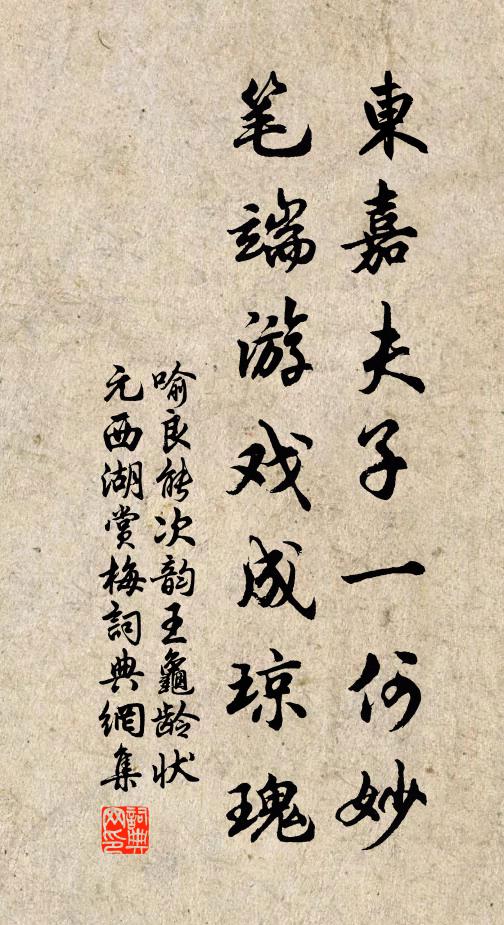 東嘉夫子一何妙
笔端游戏成琼瑰
喻良能次韵王龜龄状
元西湖賞梅詞典網集
詞典网印